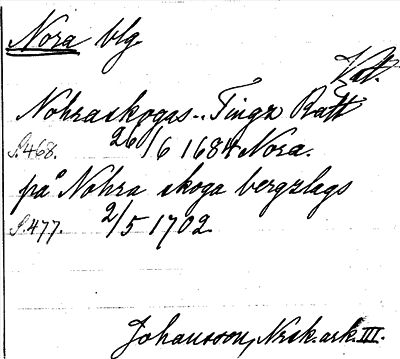 Nora blg
Kat.
Nohraskogas.. Tingz Rätt
S.468. 26/6 1684 Nora.
på Nohra skoga bergzlags
S.477. 2/5 1702
Johansson, Nrsk. ark. III.